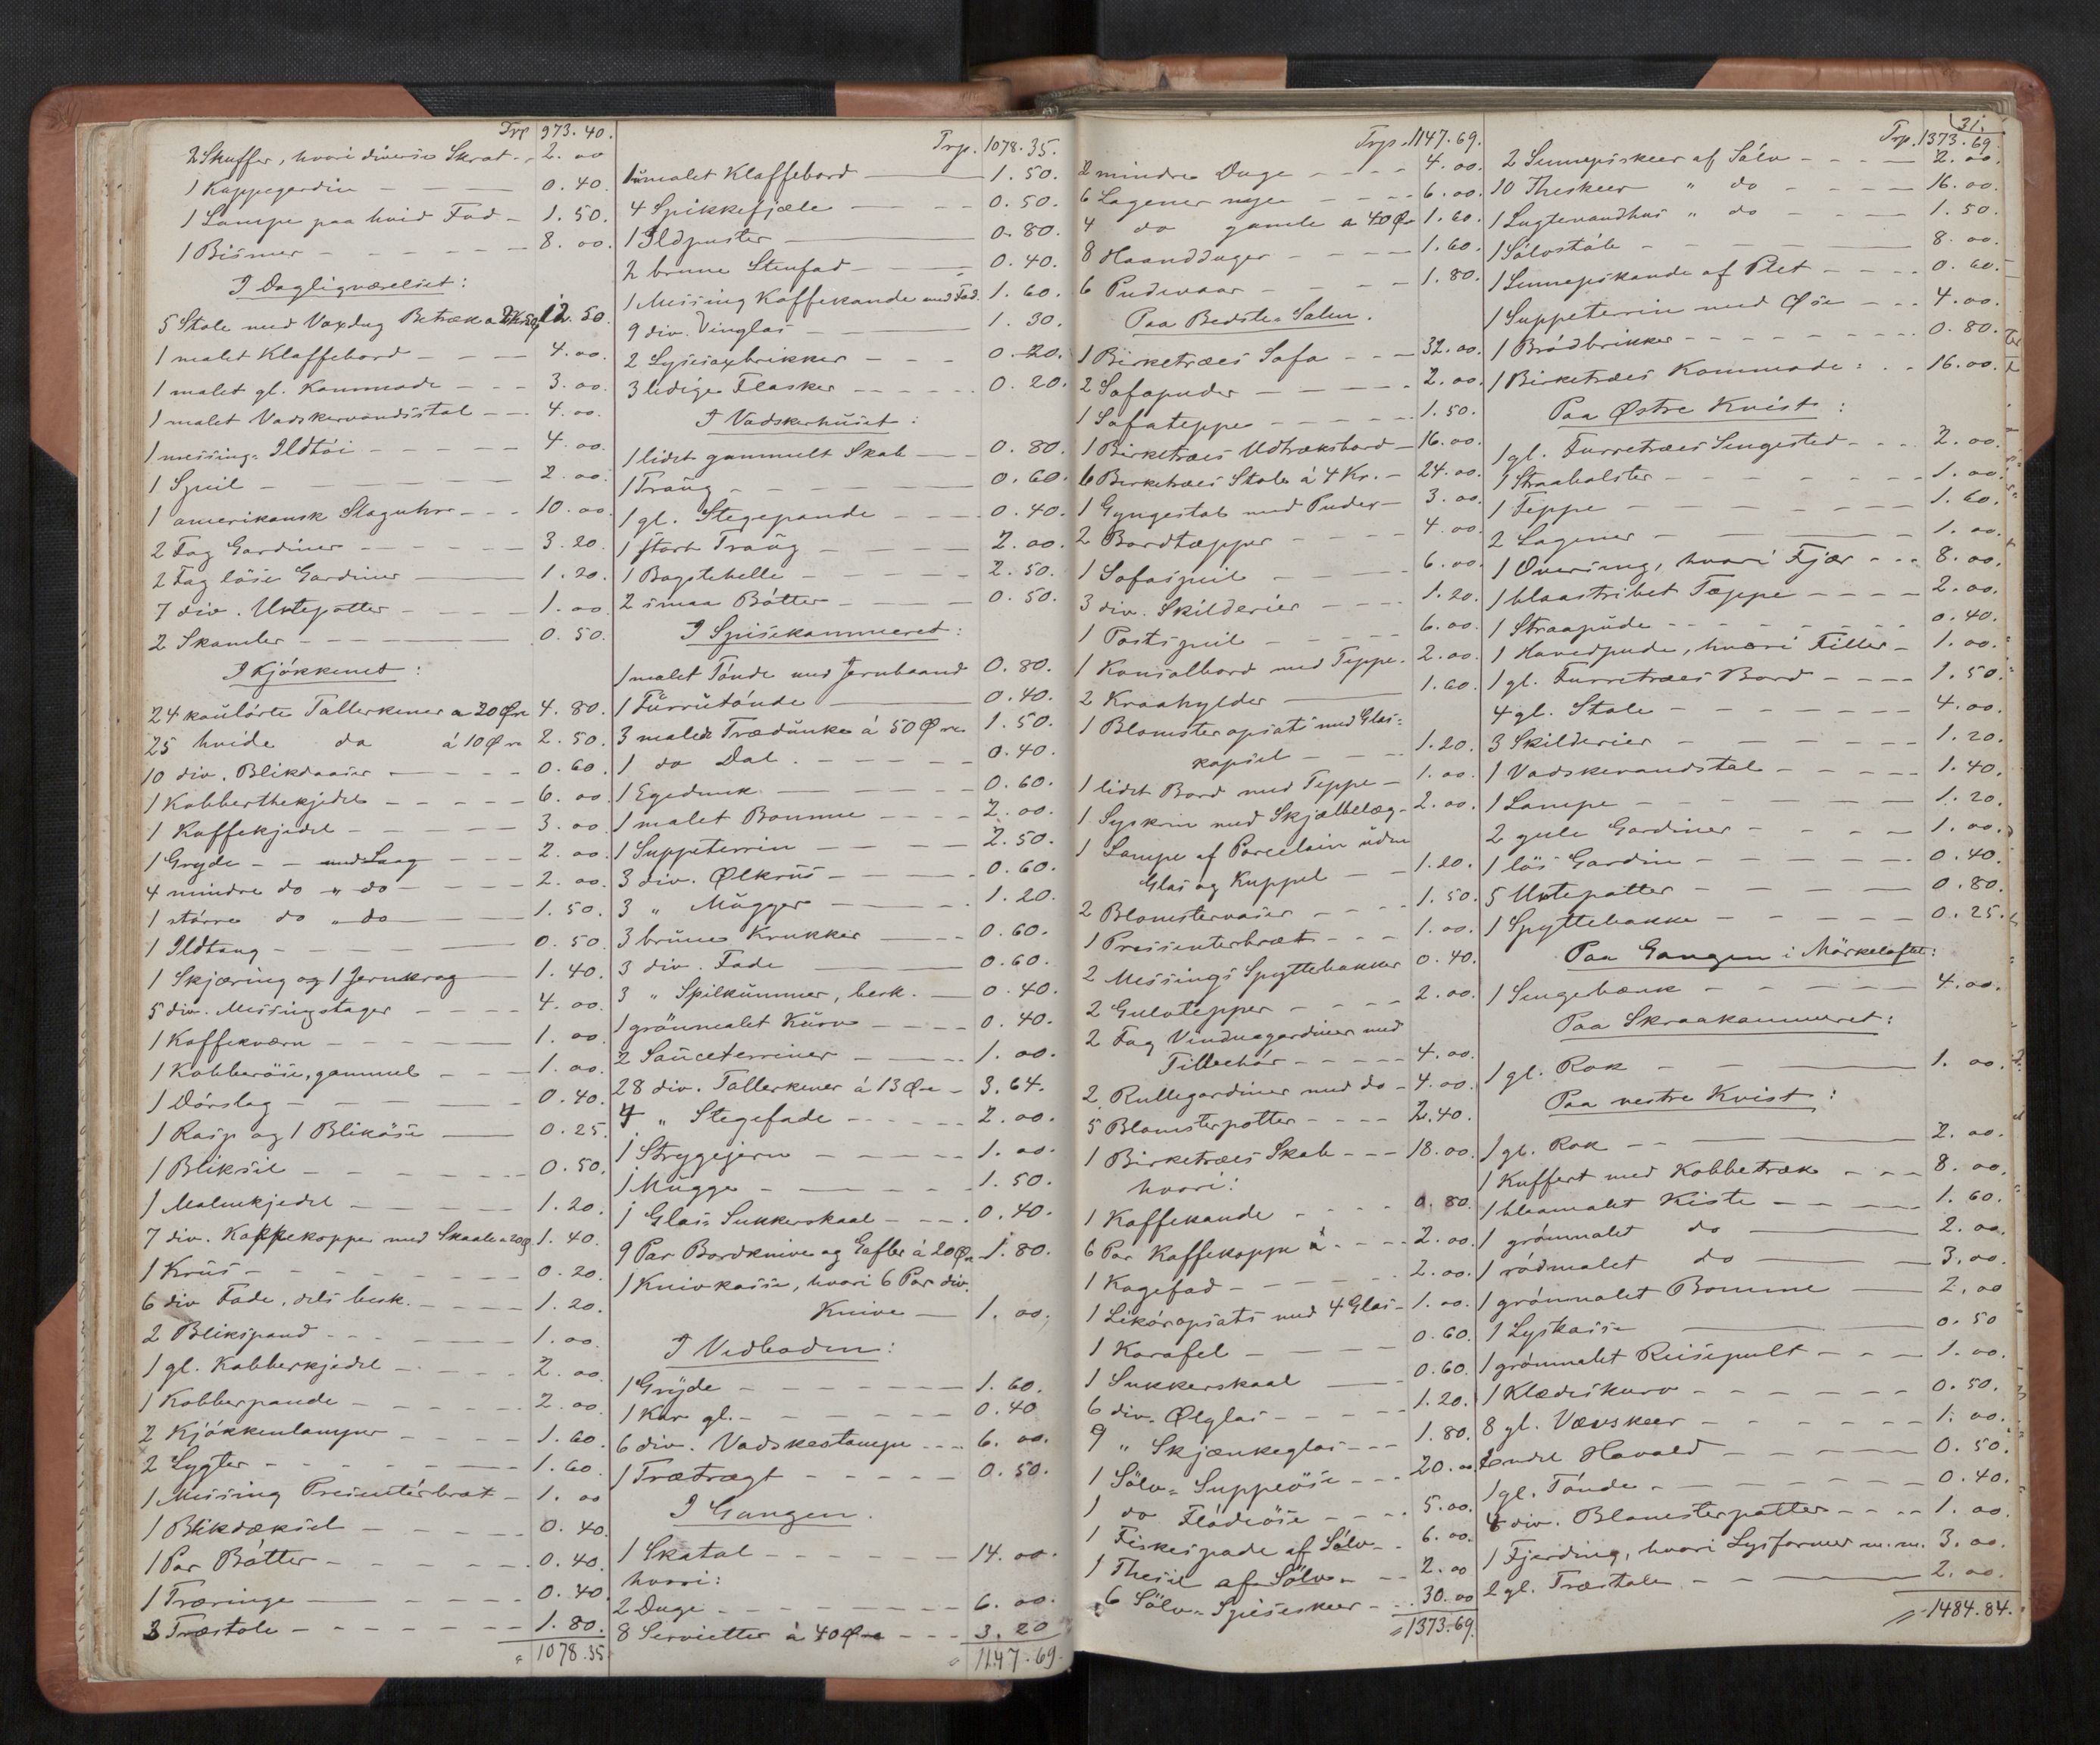 Trp 973.40.
2 Skuffer, hvori diverse Skrot - 2.00
1 Kappegardin - 0.40.
1 Lampe paa hvid Fod - 1.50.
1 Bismer - 8.00.
I Dagligværelset:
5 Stole med Voxdug Betræk a 2 Kr 50 Ø 12.50
1 malet Klaffebord - 4.00.
1 malet gl. Kommode - 3.00.
1 malet Vadskervandsstol - 4.00.
1 messing-Ildtöi - 4.00
1 Speil - 2.00
1 amerikansk Slaguhr - 10.00.
2 Fag Gardiner - 3.20.
2 Fag löse Gardiner - 1.20.
7 div. Urtepotter - 1.00
2 Skamler - 0.50.
I Kjökkenet:
24 koulörte Tallerkener a 20 Øre 4.80.
25 hvide do á 10 Øre 2.50.
10 div. Blikdaaser - 0.60.
1 Kobberthekjedel - 6.00
1 Kaffekjedel - 3.00
1 Gryde - med Laag - 2.00
4 mindre do " do - 2.00.
1 større do " do - 1.50.
1 Ildtang - 0.50
1 Skjæring og 1 Jernkrog 1.40.
5 div. Messingstager - 4.00.
1 Kaffekværn - 1.00
1 Kobberöse, gammel - 1.00.
1 Dörslag - 0.40.
1 Rasp og 1 Bliköse - 0.25.
1 Bliksil - 0.50.
1 Malmkjedel - 1.20.
7 div. Kaffekopper med Skaale a 20 Ø 1.40.
1 Krus - 0.20.
6 div Fade, dels besk. - 1.20.
2 Blikspand - 1.00
1 gl. Kobberkjedel - 2.00
1 Kobberpande - 2.00
2 Kjökkenlamper - 1.60.
2 Lygter - 1.60
1 Messing Presenterbræt - 1.00
1 Blikdæksel - 0.40.
1 Par Bötter - 0.40.
1 Træringe - 0.40
3 Træstole - 1.80.
" 1078.35
Trp. 1078.35.
1 umalet Klaffebord - 1.50.
4 Spikkefjæle - 0.50.
1 Ildpuster - 0.80.
2 brune Stenfad - 0.40.
1 Messing Kaffekande med Fad. 1.60.
9 div. Vinglas - 1.30.
2 Lysesaxbrikker - 0.20.
3 ledige Flasker - 0.20.
I Vadskerhuset:
1 lidet gammelt Skab - 0.80.
1 Traug - 0.60.
1 gl. Stegepande - 0.40.
1 stort Traug - 2.00.
1 Bagstehelle - 2.50.
2 smaa Bötter - 0.50.
I Spisekammeret:
1 malet Tönde med Jernbaand 0.80.
1 Furrutönde - 0.40.
3 malede Trædunke á 50 Øre 1.50.
1 do Dal - 0.40.
1 Egedunk - 0.60.
1 malet Bomme - 2.00.
1 Suppeterrin - 2.50.
3 div. Ølkrus - 0.60.
3 " Mugger - 1.20.
3 brune Krukker - 0.60.
3 div. Fade - 0.60.
3 " Spilkummer, besk. - 0.40.
1 grönmalet Kurv - 0.40.
2 Sauceterriner - 1.00.
28 div. Tallerkener á 13 Øre - 3.64.
4 " Stegefade - 2.00.
1 Strygejern - 1.00.
1 Mugge - 1.50.
1 Glas Sukkerskaal - 0.40.
9 Par Bordknive og Gafler á 20 Øre 1.80.
1 Knivkasse, hvori 6 Par div.
Knive - 1.00.
I Vedboden:
1 Gryde - 1.60.
1 Kar gl. - 0.40
6 div. Vadskestamper - 6.00.
1 Trætragt - 0.50.
I Gangen.
1 Skatol - 14.00.
hvori:
2 Duge - 6.00.
8 Servietter á 40 Øre - 3.20
" 1147.69.
Trp. 1147.69.
2 mindre Duge - 4.00.
6 Lagener nye - 6.00.
4 do gamle a 40 Øre 1.60.
8 Haandduger - 1.60.
6 Pudevaar - 1.80.
Paa Bedste-Salen.
1 Birketræes Sofa - 32.00.
2 Sofapuder - 2.00.
1 Sofateppe - 1.50.
1 Birketræes Udtræksbord - 16.00.
6 Birketræes Stole á 4 Kr. - 24.00.
1 Gyngestol med Puder - 3.00.
2 Bordtæpper - 4.00
1 Sofaspeil - 6.00.
3 div. Skilderier - 1.20.
1 Postspeil - 6.00.
1 Konsolbord med Teppe - 2.00.
2 Kraahylder - 1.60.
1 Blomsteropsats med Glas-
kapsel - 1.20.
1 lidet Bord med Teppe - 1.00.
1 Syskrin med Skjælbelæg - 2.00.
1 Lampe af Porcelain uden
Glas og Kuppel - 1.20.
2 Blomstervaser - 1.50.
1 Presenterbræt - 1.00.
2 Messings Spyttebakker 0.40.
2 Gulvtepper - 2.00.
2 Fag Vinduegardiner med
Tillbehör - 4.00.
2 Rullegardiner med do - 4.00.
5 Blomsterpotter - 2.40.
1 Birketræes Skab - 18.00.
hvori:
1 Kaffekande - 0.80.
6 Par Kaffekopper á - 2.00.
1 Kagefad - 2.00.
1 Liköropsats med 4 Glas - 1.00.
1 Karafel - 0.60.
1 Sukkerskaal - 0.60.
6 div. Ølglas - 1.20.
9 " Skjænkeglas - 1.80.
1 Sölv-Suppeöse - 20.00
1 do Flödeöse - 5.00.
1 Fiskespade af Sölv - 6.00.
1 Thesil af Sölv - 2.00
6 Sölv-Spiseskeer - 30.00
" 1373.69.
31.
Trp. 1373.69
2 Sennepskeer af Sölv - 2.00.
10 Theskeer " do - 16.00.
1 Lugtevandhus " do - 1.50.
1 Sölvstöb - 8.00.
1 Sennepskande af Plet - 0.60.
1 Suppeterrin med Øse - 4.00.
1 Brödbrikker - 0.80.
1 Birketræes Kommode: - 16.00.
Paa Østre Kvist:
1 gl. Furretræes Sengested - 2.00.
1 Straabolster - 1.00.
1 Teppe - 1.60.
2 Lagener - 1.00.
1 Overseng, hvori Fjær - 8.00.
1 blaastribet Tæppe - 2.00.
1 Straapude - 0.40.
1 Hovedpude, hvori Filler - 1.00.
1 gl. Furretræes Bord - 1.50.
4 gl. Stole - 4.00.
3 Skilderier - 1.20.
1 Vadskevandstol - 1.40.
1 Lampe - 1.20.
2 gule Gardiner - 1.00.
1 lös Gardin - 0.40.
5 Urtepotter - 0.80.
1 Spyttebakke - 0.25.
Paa Gangen i Mörkeloftet:
1 Sengebænk - 4.00.
Paa Skraakammeret:
1 gl. Rok - 1.00.
Paa vestre Kvist:
1 gl. Rok - 2.00.
1 Kuffert med Kobbetræk - 8.00.
1 blaamalet Kiste - 1.60.
1 grönmalet do - 2.00.
1 rödmalet do - 3.00.
1 grönmalet Bomme - 2.00
1 Lyskasse - 0.50
1 grönmalet Reisepult - 1.00.
1 Klædeskurv - 0.50.
8 gl. Vævskeer - 1.00.
Endel Havald - 0.50.
1 gl. Tönde - 0.40.
4 div. Blomsterpotter - 1.00.
1 Fjerding, hvori Lysformer m.m. 3.00.
2 gl. Træstole - 2.00.
" 1484.84.